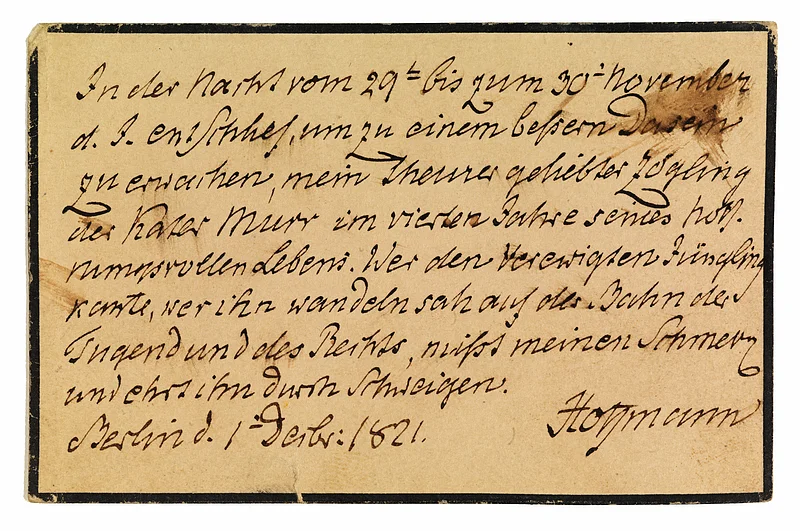 In der Nacht vom 29t bis zum 30t November
d. J. entschlief, um zu einem beßern Dasein
zu erwachen, mein theurer geliebter Zögling
der Kater Murr im vierten Jahre seines hoff-
nungsvollen Lebens. Wer den verewigten Jüngling
kante, wer ihn wandeln sah auf der Bahn der
Tugend und des Rechts, mißt meinen Schmerz
und ehrt ihn durch Schweigen.
Berlin d. 1t Decbr: 1821.
Hoffmann